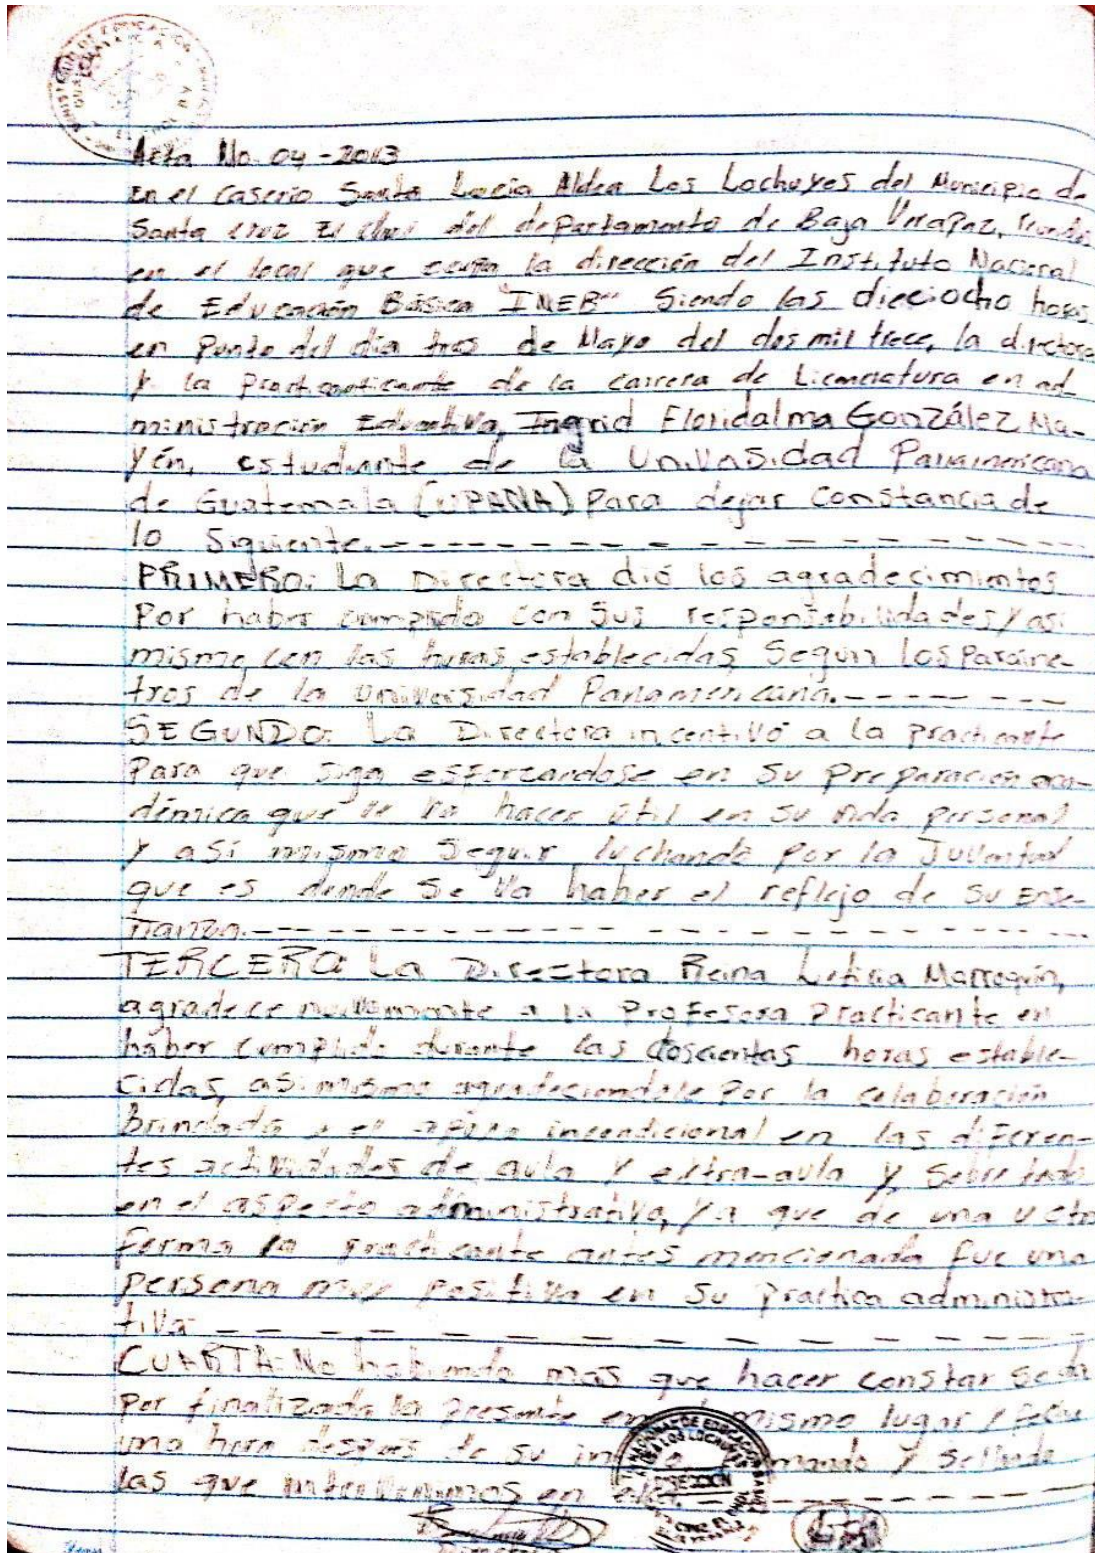 MINISTERIO DE EDUCACION
Acta No. 04-2013
En el caserio Santa Lucia Aldea Los Lochuyes del Municipio de
Santa cruz El Chol del departamento de Baja Verapaz,
en el local que ocupa la dirección del Instituto Nacional
de Educación Básica "INEB" Siendo las dieciocho horas
en Punto del día tres de Mayo del dos mil trece, la directora
y la de la carrera de Licenciatura en ad
ministración Educativa, Ingrid Floridalma González Ma-
yén, estudiante de la Universidad Panamericana
de Guatemala (UPANA) Para dejar Constancia de
lo Siguiente.
PRIMERO: La Directora dió los agradecimientos
Por haber cumplido con Sus responsabilidades y asi
mismo con las horas establecidas Segun los Parame-
tros de la Universidad Panamericana.
SEGUNDO: La Directora incentivó a la practicante
Para que siga esforzandose en su preparación aca-
démica que le va hacer útil en su vida personal
y así mismo Seguir luchando por la Juventud
que es donde se va haber el reflejo de su Ense-
ñanza.
TERCERO: La Directora Reina Leticia Marroquín,
agradece nuevamente a la Profesora Practicante en
haber cumplido durante las doscientas horas estable-
cidas, asi mismo agradeciendole Por la colaboración
brindada y el apoyo incondicional en las diferen-
tes actividades de aula y extra-aula y sobre todo
en el aspecto administrativo, ya que de una u otra
forma la practicante antes mencionada fue una
persona muy positiva en su practica administra-
tiva
CUARTA: No habiendo mas que hacer constar se da
Por finalizada la presente en mismo lugar y fecha
una hora despues de su Firmando y Sellando
las que intervenimos en ella.
DIRECCION